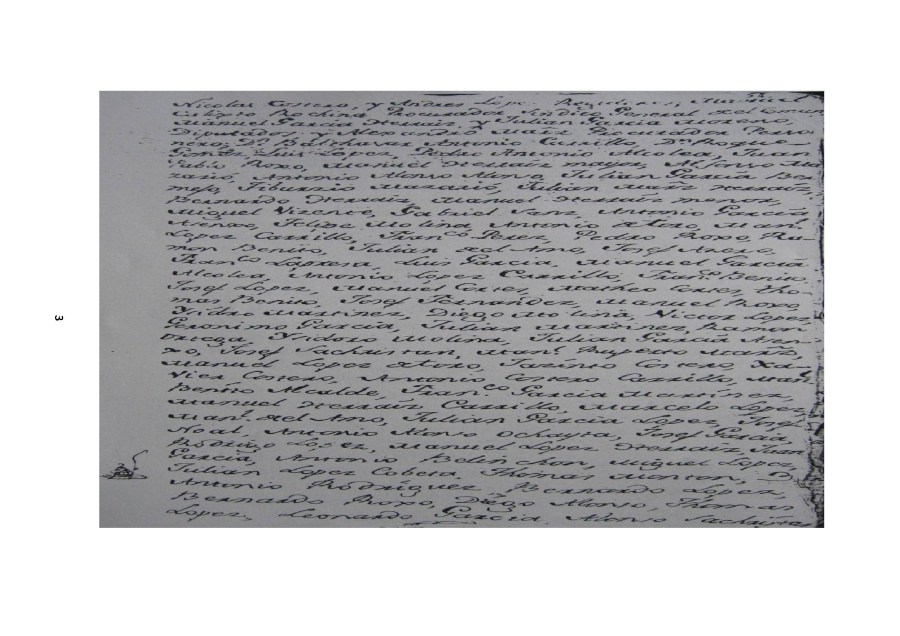 Nicolas Cortero, y Andres Lopez Regidores, Manuel
Procurador Sindico General del Comun
Manuel Garcia y Julian Garcia Moreno,
Diputados, y Alexandro Mañz Procurador Perso
nero, Dn. Balthasar Antonio Carrillo, Dn. Roque
Luis Lopez, Pedro Antonio Alcolea, Juan
Pablo Roxo, Manuel Herraiz mayor, Alonso Ma
zario, Antonio Alonso Alonso, Julian Garcia Ber
mejo, Tiburzio Mazario, Julian Mañz Herraiz,
Bernardo Herraiz, Manuel Herraiz menor,
Miguel Vizente, Gabriel Sanz, Antonio Garcia
Atenzo, Felipe Molina, Antonio Man.
Lopez Carrillo, Franco. Perez, Pedro Roxo, Ra-
mon Benito, Julian del Amo, Josef
Franco. Luis Garcia, Manuel Garcia
Alcolea, Antonio Lopez Carrillo, Franco. Benito
Josef Lopez, Manuel Cortes, Matheo Cortes, Tho-
mas Benito, Josef Fernandez, Manuel Roxo,
Ysidro Martinez, Diego Molina, Victor Lopez
Geronimo Garcia, Julian Martinez, Ramon
Ortega Ysidoro Molina, Julian Garcia Aten-
zo, Josef Sachristan, Manl. Ruperto Mañz,
Manuel Lopez Cortero, Xa-
vier Cortero, Antonio Cortero Carrillo, Manl.
Benito Alcalde, Franco. Garcia Martinez,
Manuel Herraiz Carrillo, Marcelo Lopez,
Manl. del Amo, Julian Garcia Lopez, Josef
Noal, Antonio Alonso Ochayta, Josef Garcia
Rodrigo Lopez, Manuel Lopez Herraiz, Juan
Garcia, Antonio Belinchon, Miguel Lopez,
Julian Lopez Cabeza Thomas Monton, D
Antonio Rodriguez Bernardo Lopez,
Bernardo Roxo, Diego Alonso, Thomas
Lopez, Leonardo Garcia, Alonso Sachristan
3